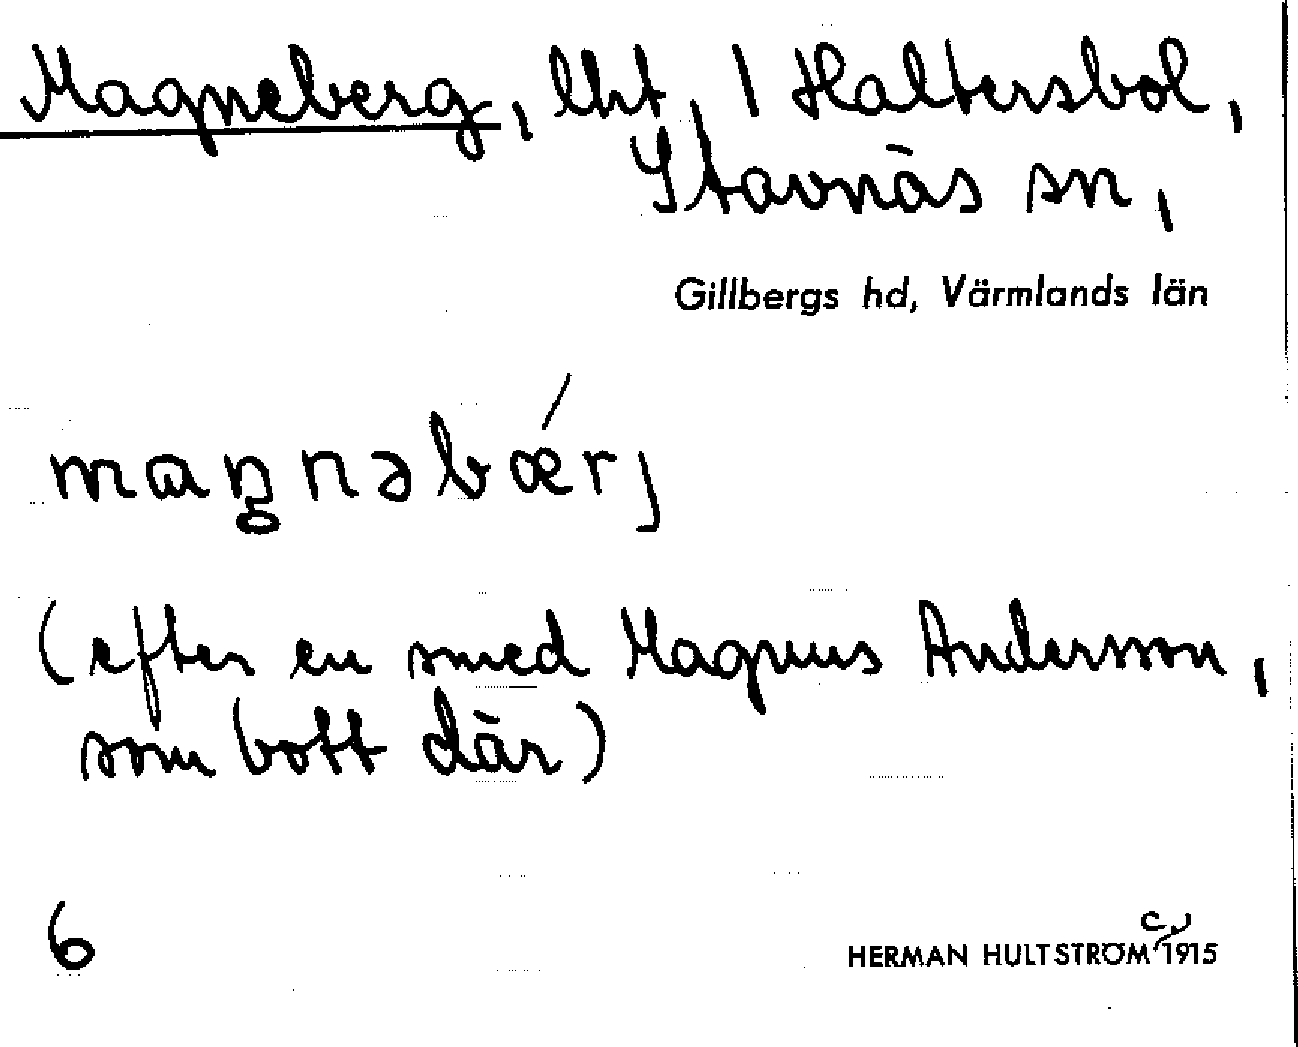 Magneberg, lht, 1 Haltersbol,
Stavnäs sn,
Gillbergs hd, Värmlands län
maŋnəbǽrj
(efter en smed Magnus Andersson,
som bott där)
6
HERMAN HULTSTRÖM 1915